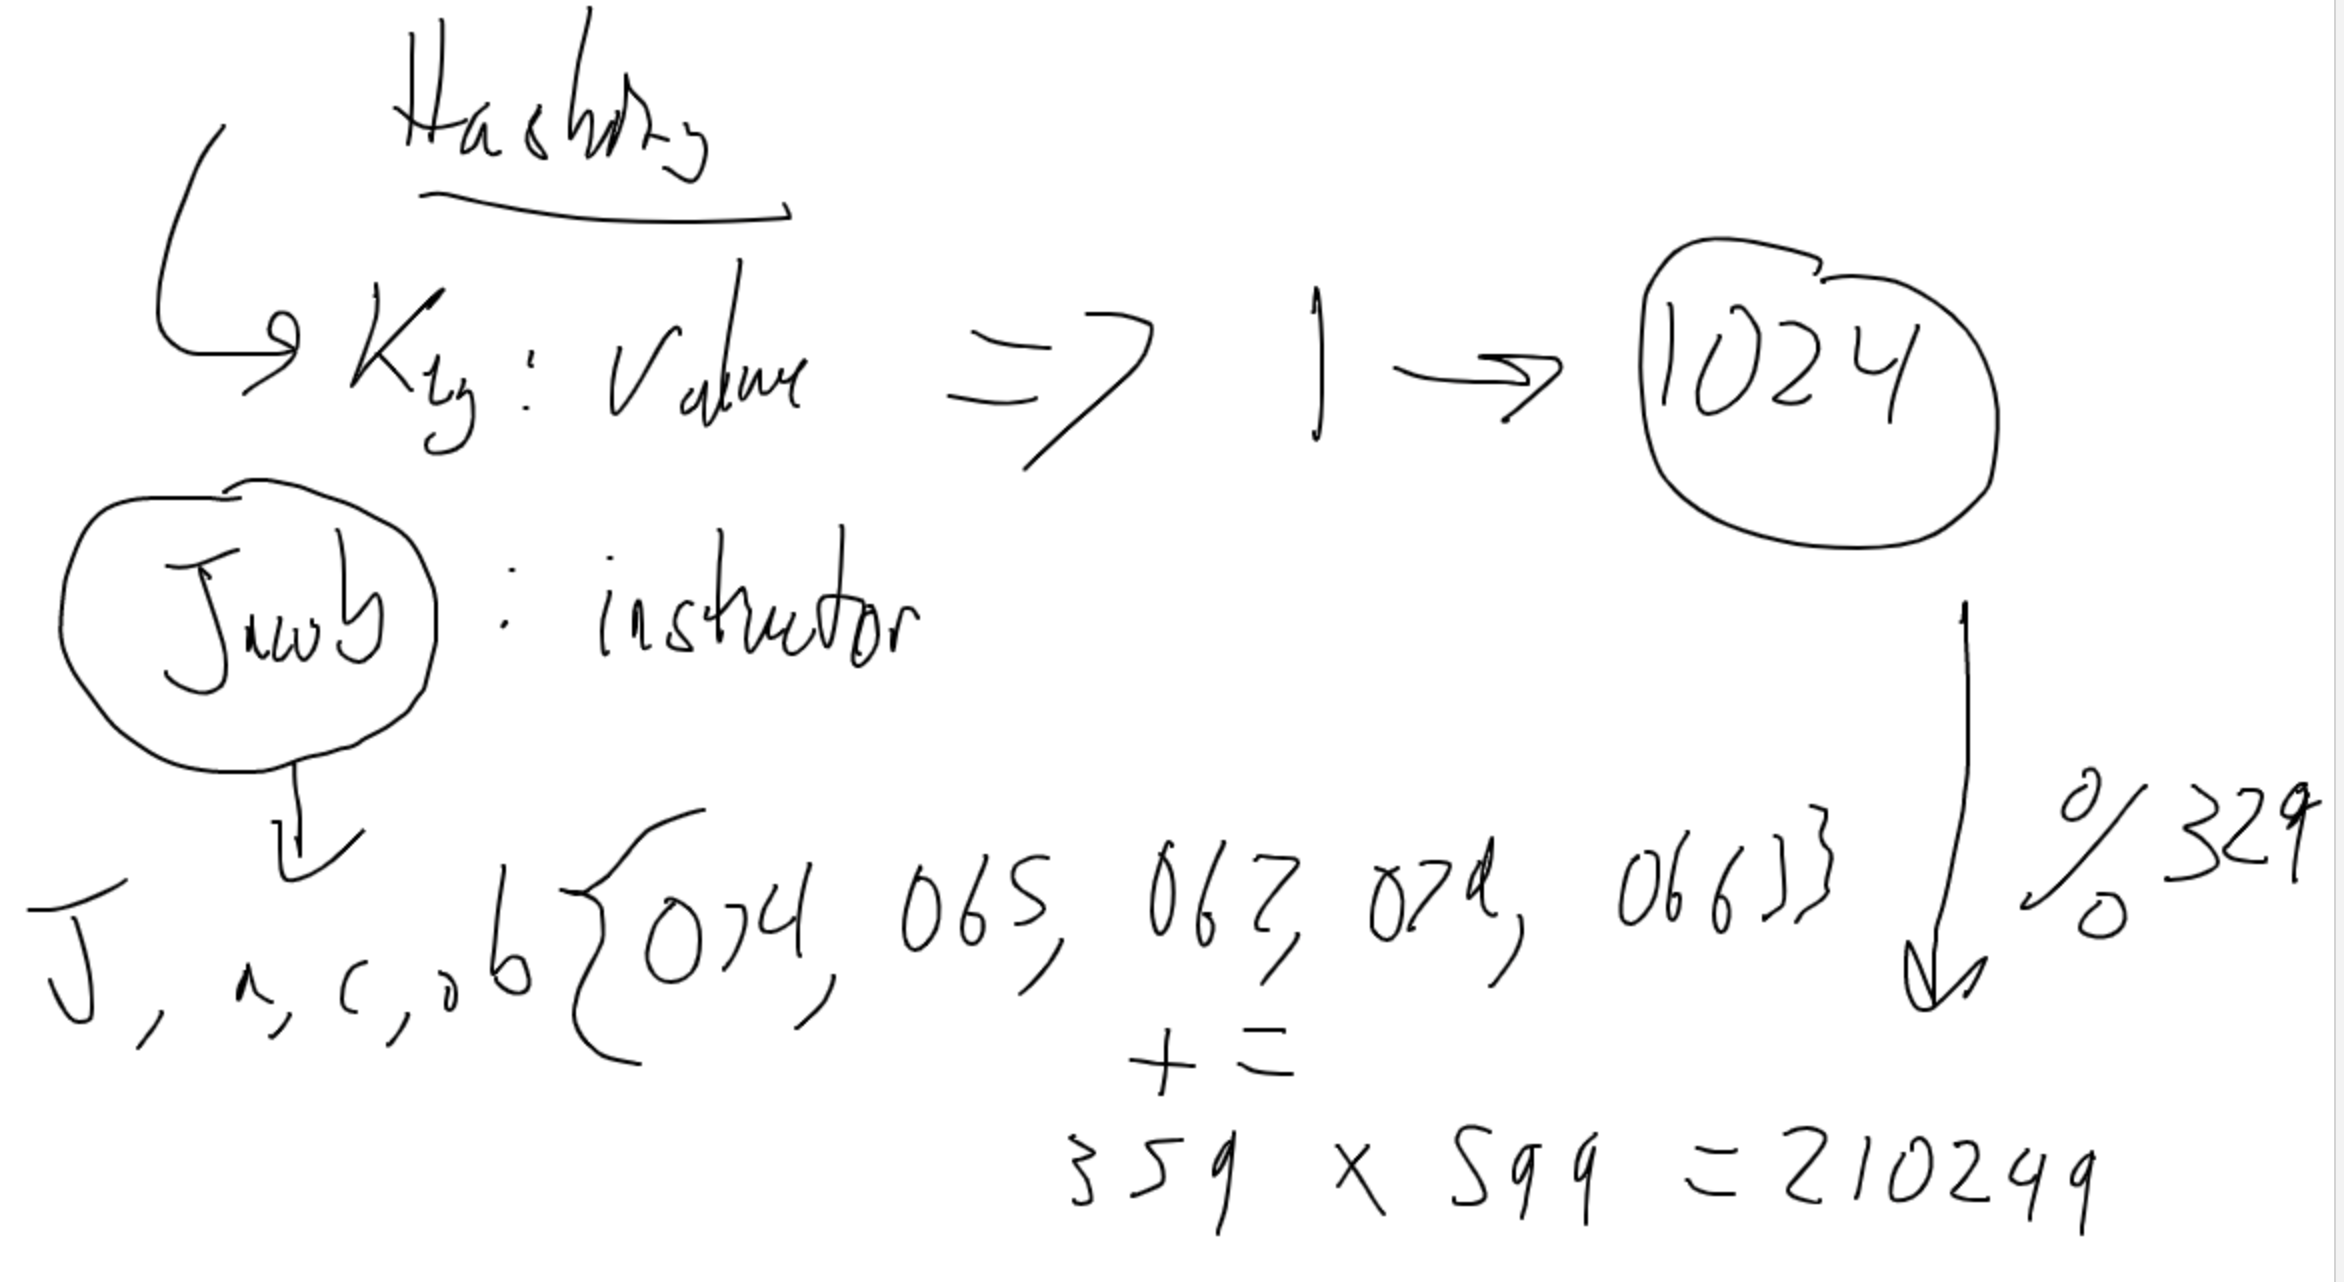 Hashing
Key : Value => 1 → 1024
Jacob : instructor
% 329
J, a, c, o b { 074, 065, 067, 079, 066 ] }
+ =
359 x 599 = 210249